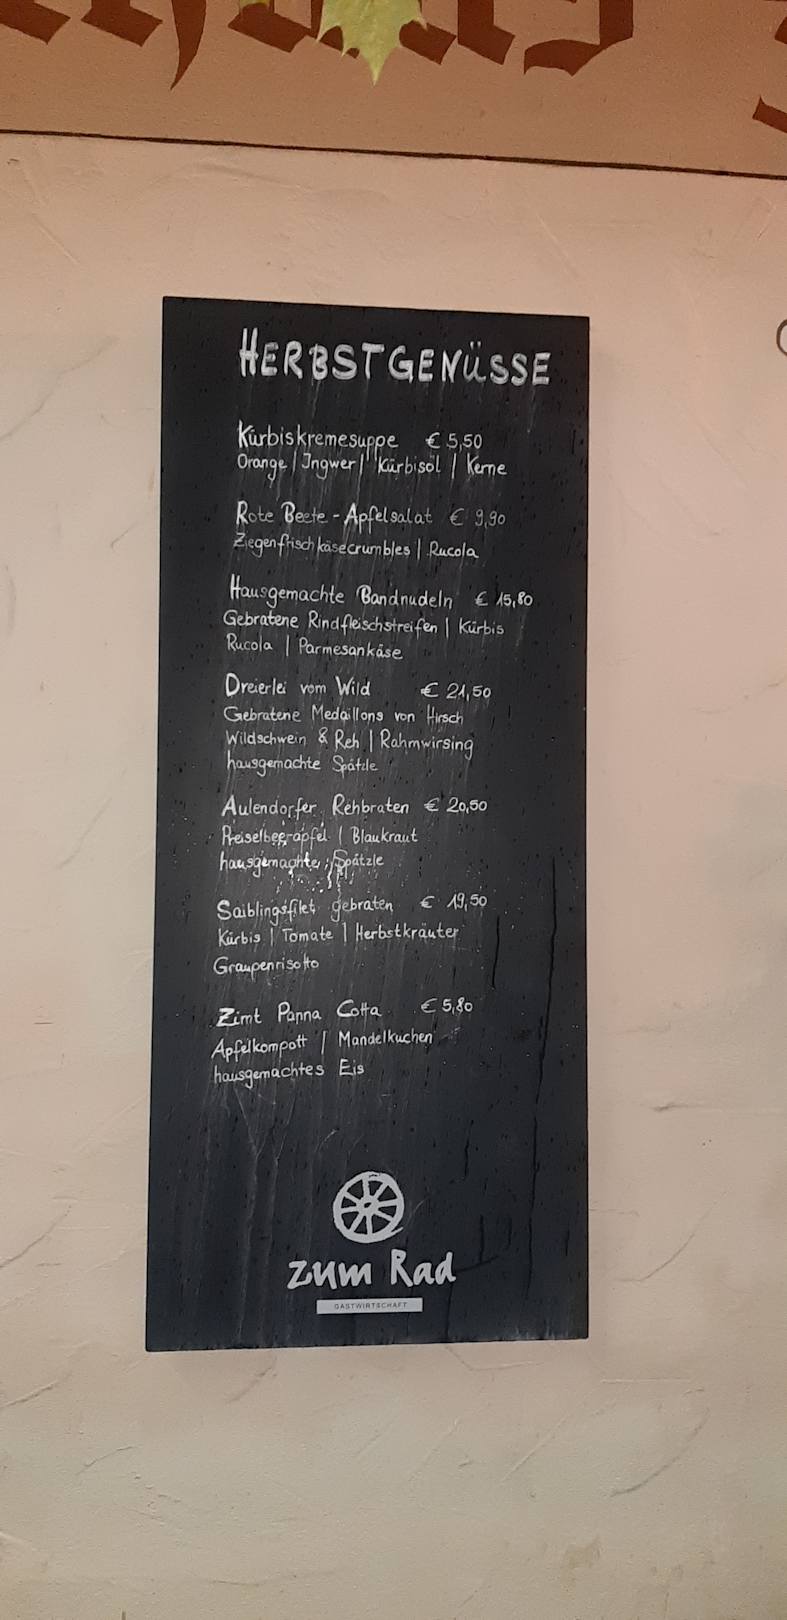 HERBSTGENÜSSE
Kürbiskremesuppe € 5,50
Orange | Ingwer | Kürbisöl | Kerne
Rote Beete - Apfelsalat € 9,90
Ziegenfrischkäsecrumbles | Rucola
Hausgemachte Bandnudeln € 15,80
Gebratene Rindfleischstreifen | Kürbis
Rucola | Parmesankäse
Dreierlei vom Wild € 21,50
Gebratene Medaillons von Hirsch
Wildschwein & Reh | Rahmwirsing
hausgemachte Spätzle
Aulendorfer Rehbraten € 20,50
Preiselbeerapfel | Blaukraut
hausgemachte Spätzle
Saiblingsfilet gebraten € 19,50
Kürbis | Tomate | Herbstkräuter
Graupenrisotto
Zimt Panna Cotta € 5,80
Apfelkompott | Mandelkuchen
hausgemachtes Eis
zum Rad
GASTWIRTSCHAFT